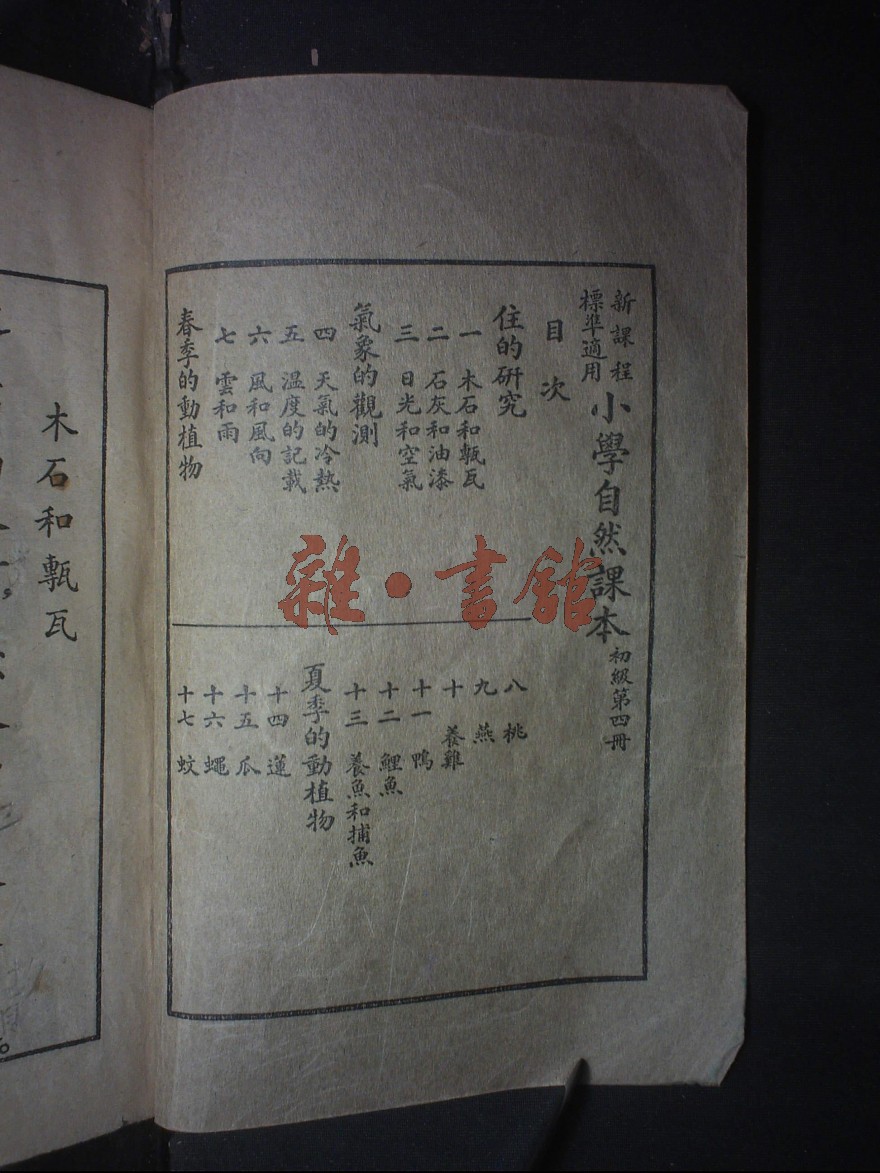 新課程
標準適用
小學自然課本 初級第四冊
目次
住的研究
一 木石和甎瓦
二 石灰和油漆
三 日光和空氣
氣象的觀測
四 天氣的冷熱
五 溫度的記載
六 風和風向
七 雲和雨
春季的動植物
八 桃
九 燕
十 養雞
十一 鴨
十二 鯉魚
十三 養魚和捕魚
夏季的動植物
十四 蓮
十五 瓜
十六 蠅
十七 蚊
木石和甎瓦
雜·書館